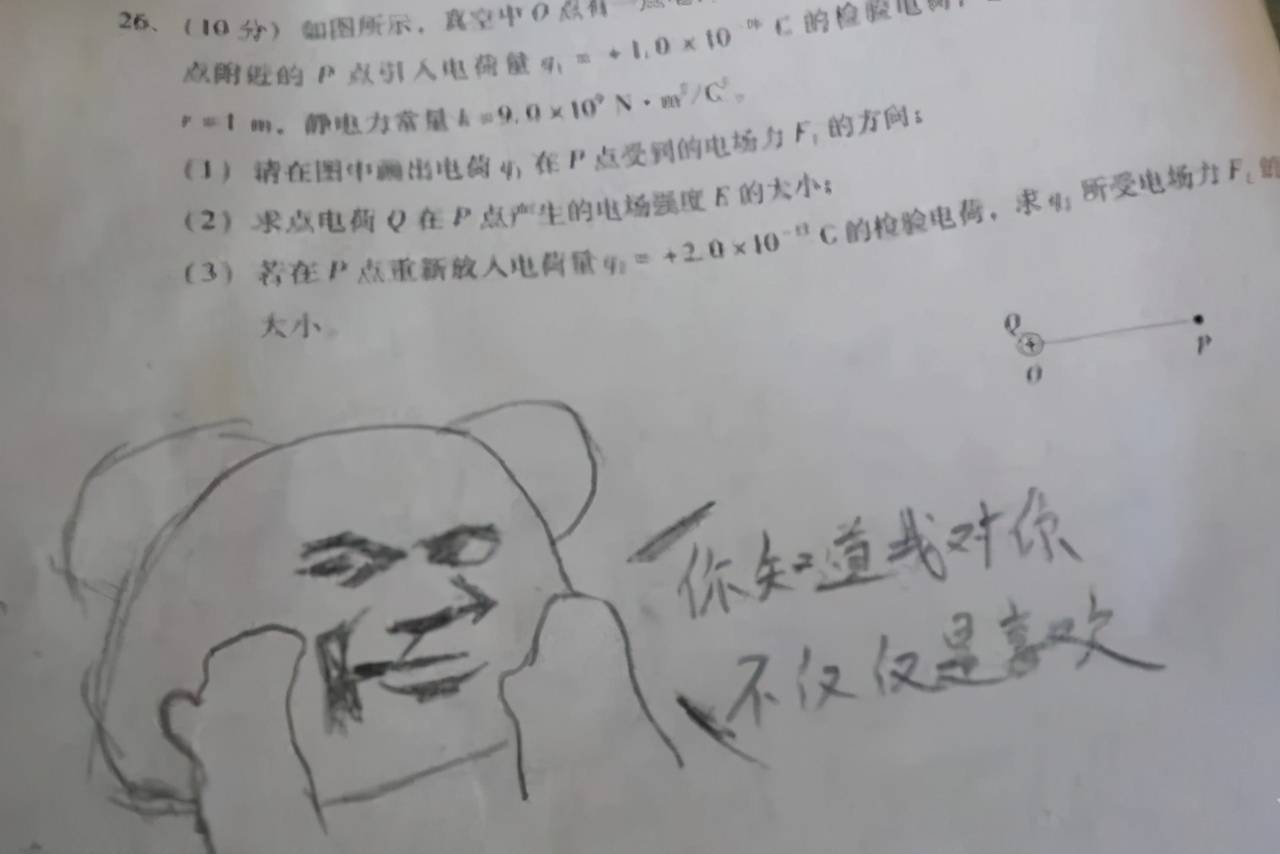 26、(10分) 如图所示，真空中O点有一点电
点附近的P点引入电荷量q₁ = +1.0×10 C的检验电荷，
r=1 m，静电力常量k=9.0×10⁹ N·m²/C²。
(1) 请在图中画出电荷q₁在P点受到的电场力F₁的方向；
(2) 求点电荷Q在P点产生的电场强度E的大小；
(3) 若在P点重新放入电荷量q₂=+2.0×10⁻¹³ C的检验电荷，求q₂所受电场力F₂的
大小。
Q
+
O
P
你知道我对你
不仅仅是喜欢